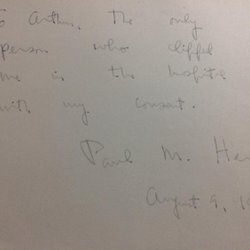 To Arthur, the only
person who clipped
me in the hospital
with my consent.
Paul M. He
August 9, 19